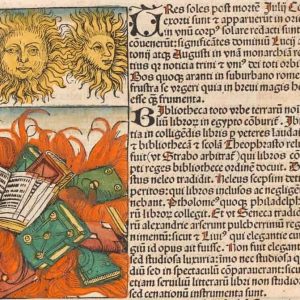 RES soles post mortē Julij Ce
exorti sunt & apparuerūt in orie
in vnū corpꝰ solare redacti sunt
cōuenerūt: significātes dominiū Lucij
tonij atqꝫ Augusti in vnā monarchiā re
tis qꝫ noticia trini & vniꝰ dei toti orbi
Bos quoqꝫ aranti in suburbano rome
frustra se vrgeri quia in breui magis ho
esse q̄ frumenta.
Bibliotheca toto orbe terrarū noti
rū librorū in egypto cōburit.
tia in colligēdis libris p̱ veteres laudatur
& bibliotheca & scola Theophrasto
fuit (vt Strabo arbitratꝰ) qui libros cō
pti reges bibliothece ordinē docuit.
bus relictā Neleo tradidit. Neleus scepsim det
peritos: qui libros inclusos ac negligē
bebant. Ptholomeꝰ quoqꝫ philadelph
rū libroꝝ collegit. Et vt Seneca tradit
alexandrie arserunt pulcerrimū regi
mentū: sicut & Liuiꝰ que elegantie cur
gium id opus ait fuisse. Non fuit elegan
sed studiosa luxuria: imo nec studiosa q
dū sed in spectaculū cōparauerant: sic
etiam seruiliū literarū libri non studio
sed cenationū instrumenta sunt